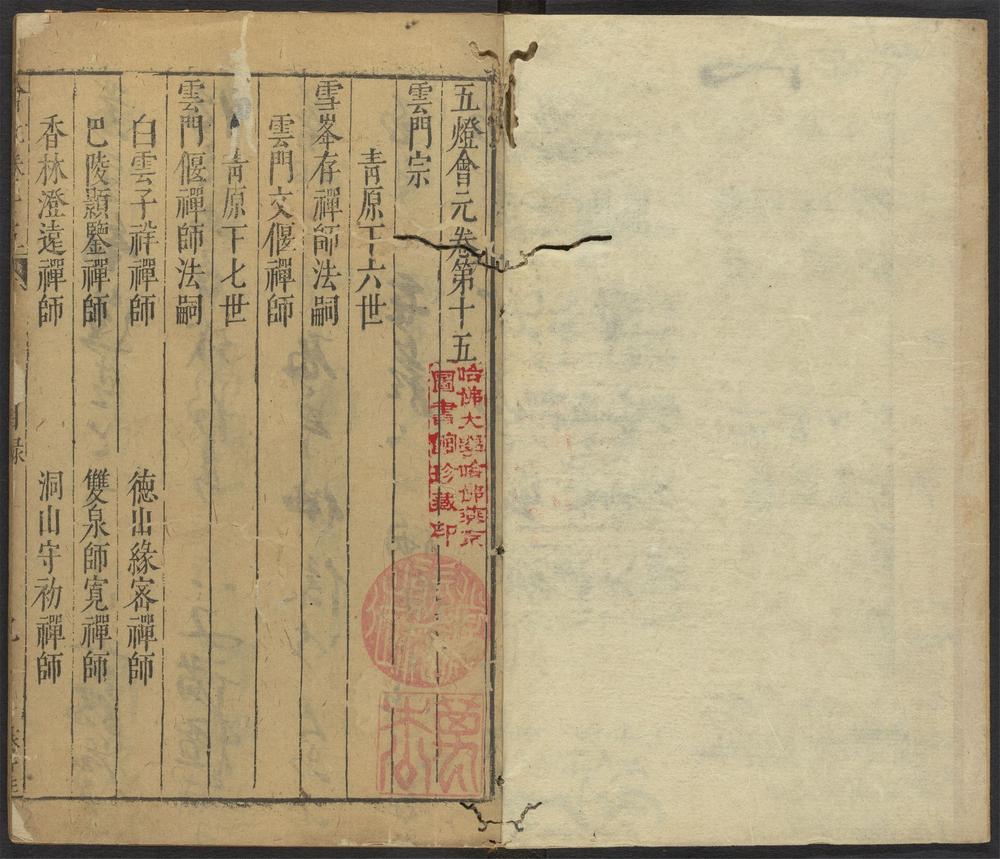 五燈會元卷第十五
雲門宗
青原下六世
雪峯存禪師法嗣
雲門文偃禪師
青原下七世
雲門偃禪師法嗣
白雲子祥禪師
德山緣密禪師
巴陵顥鑒禪師
雙泉師寬禪師
香林澄遠禪師
洞山守初禪師
目錄
哈佛大學哈佛燕京
圖書館珍藏印